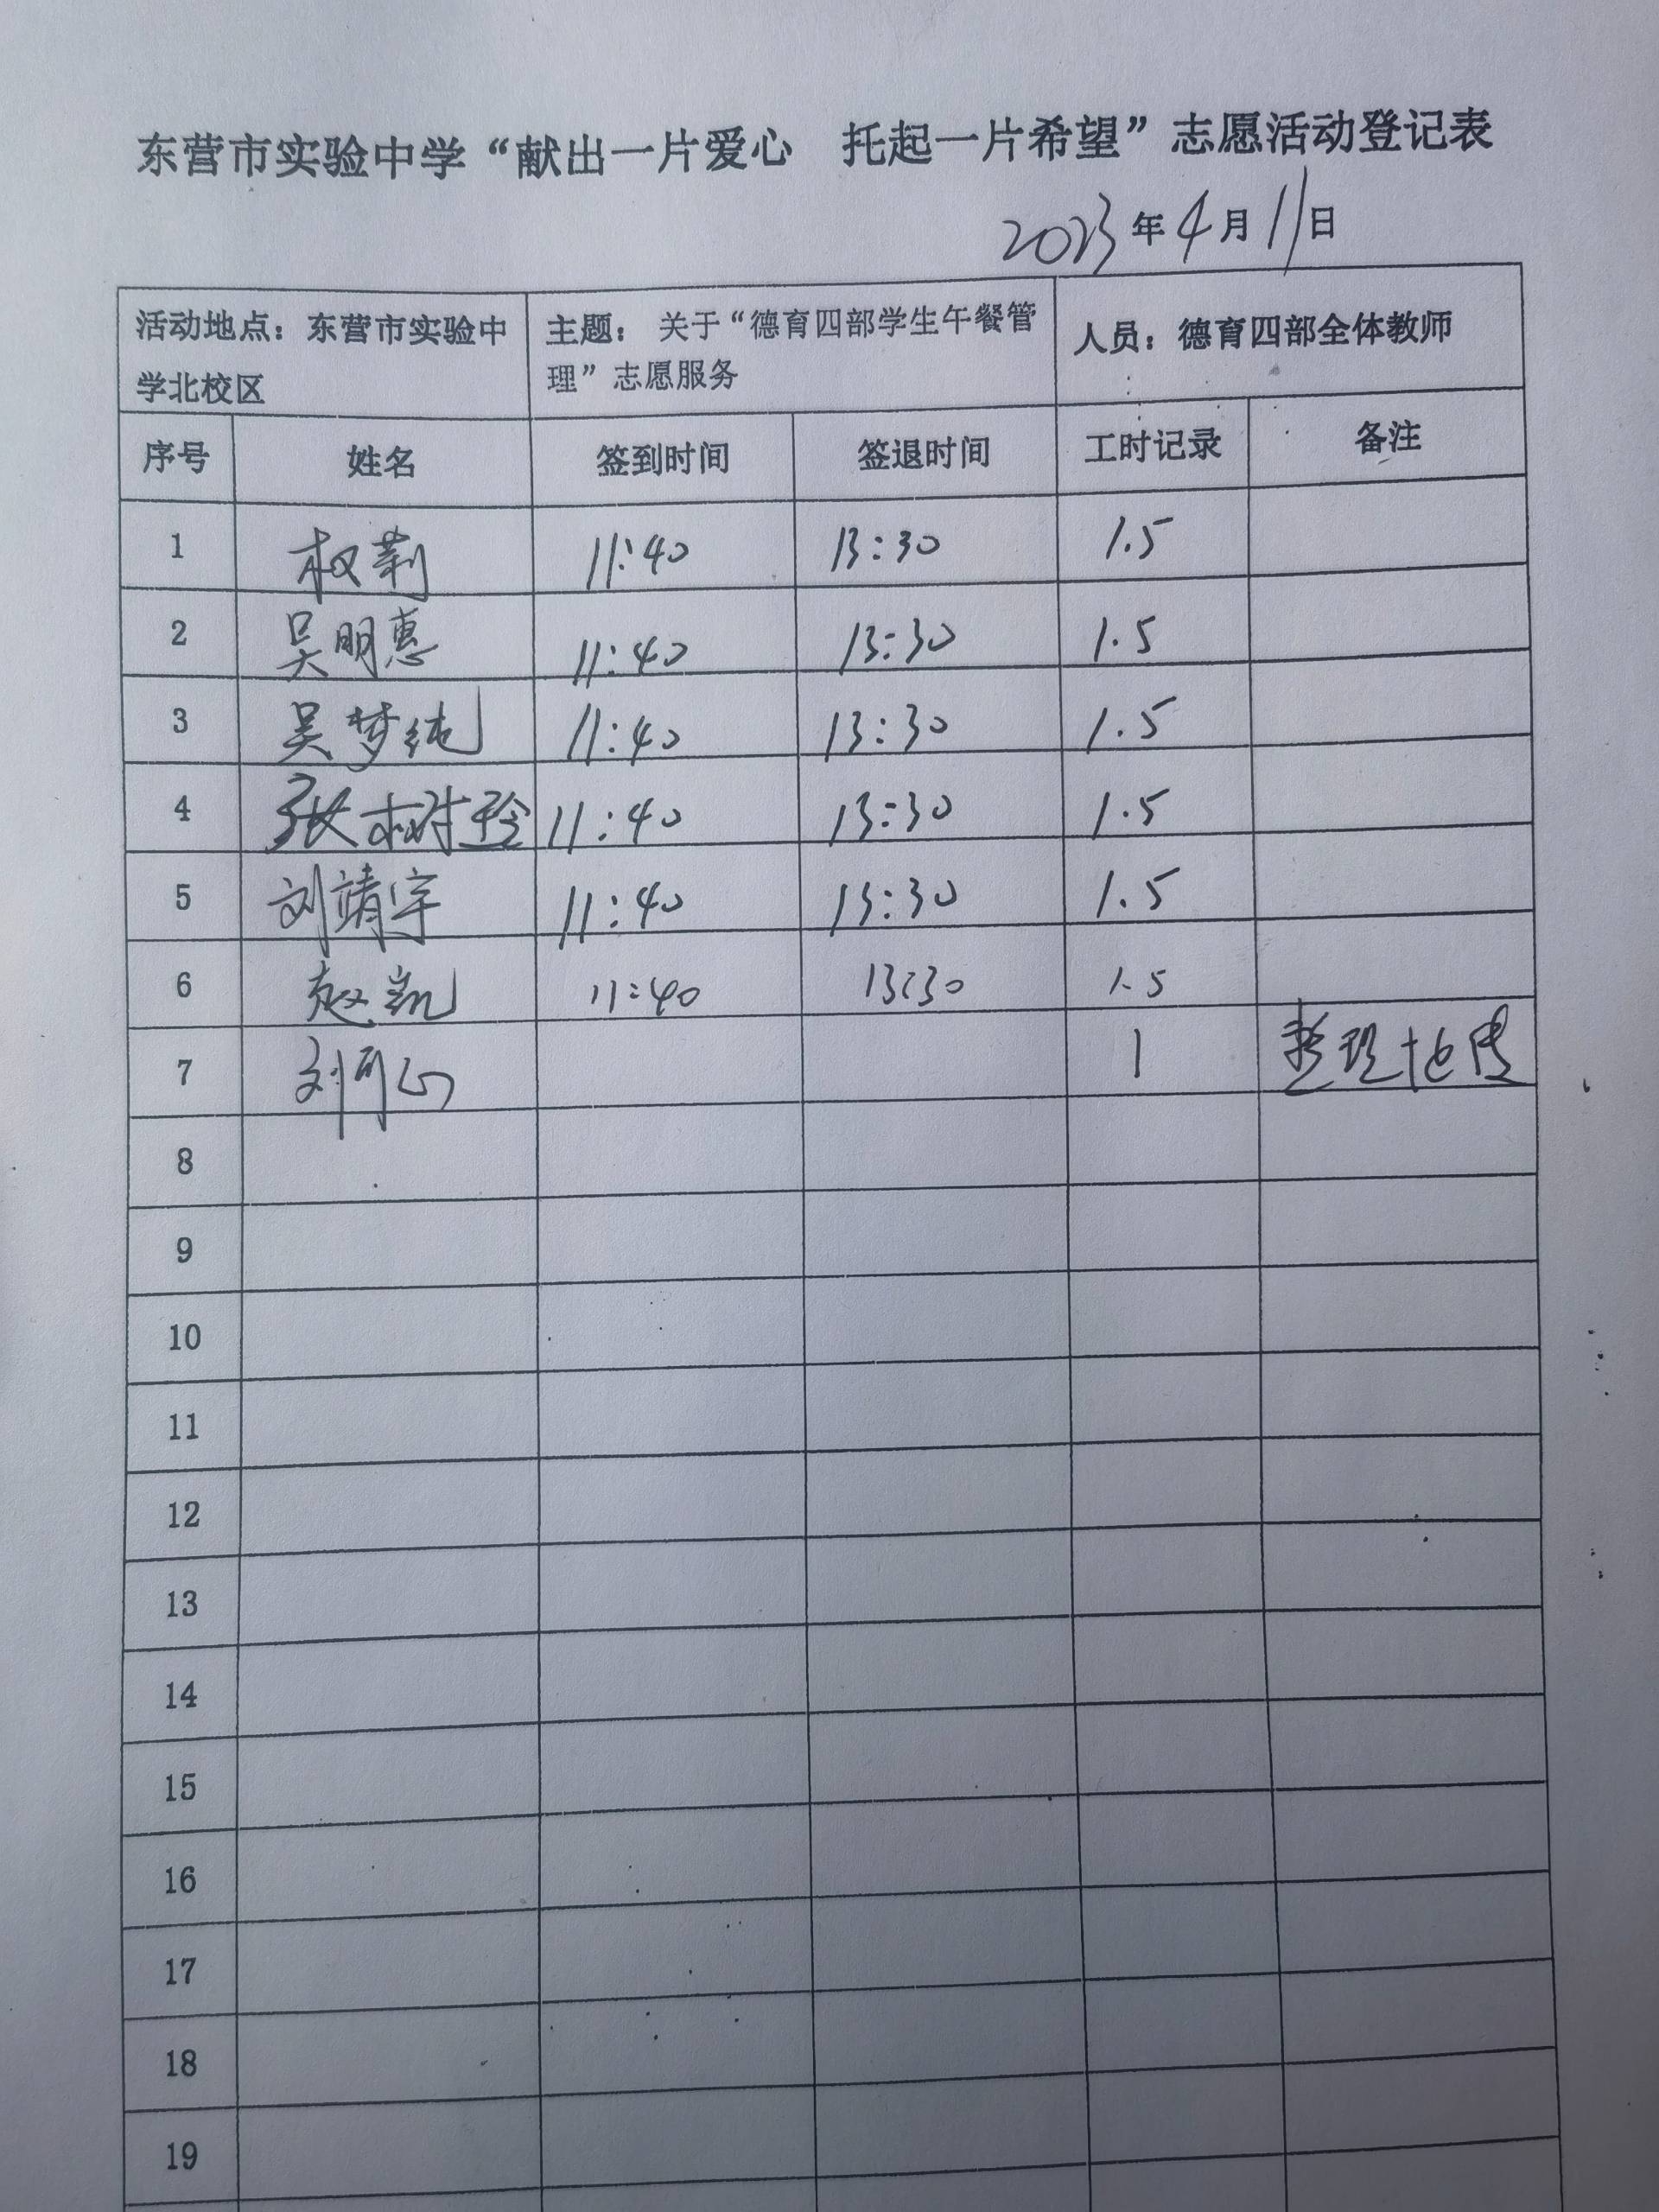 东营市实验中学“献出一片爱心 托起一片希望”志愿活动登记表
2023年4月11日
活动地点：东营市实验中学北校区 主题：关于“德育四部学生午餐管理”志愿服务 人员：德育四部全体教师
序号 姓名 签到时间 签退时间 工时记录 备注
1 权莉 11:40 13:30 1.5
2 吴明惠 11:40 13:30 1.5
3 吴梦纯 11:40 13:30 1.5
4 张树玲 11:40 13:30 1.5
5 刘靖宇 11:40 13:30 1.5
6 赵凯 11:40 13:30 1.5
7 刘可心 1 整理
8
9
10
11
12
13
14
15
16
17
18
19